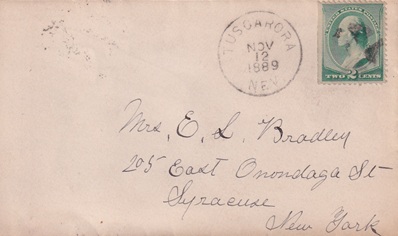 TUSCARORA
NOV
12
1889
NEV.
TWO 2 CENTS
Mrs. E. L. Bradley
205 East Onondaga St
Syracuse
New York